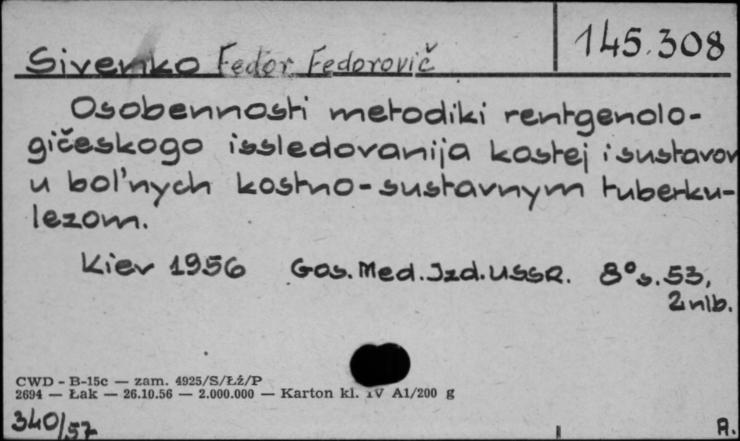 145.308
Sivenko Fedor Fedorovič
Osobennosti metodiki rentgenolo-
gičeskogo issledovanija kostej i sustavov
u bol'nych kostno-sustavnym tuberku-
lezom.
Kiev 1956 Gos. Med. Izd. USSR. 8° s. 53,
2 nlb.
CWD - B-15c — zam. 4925/S/Łź/P
2694 — Łak — 26.10.56 — 2.000.000 — Karton kl. IV A1/200 g
340/57
A.